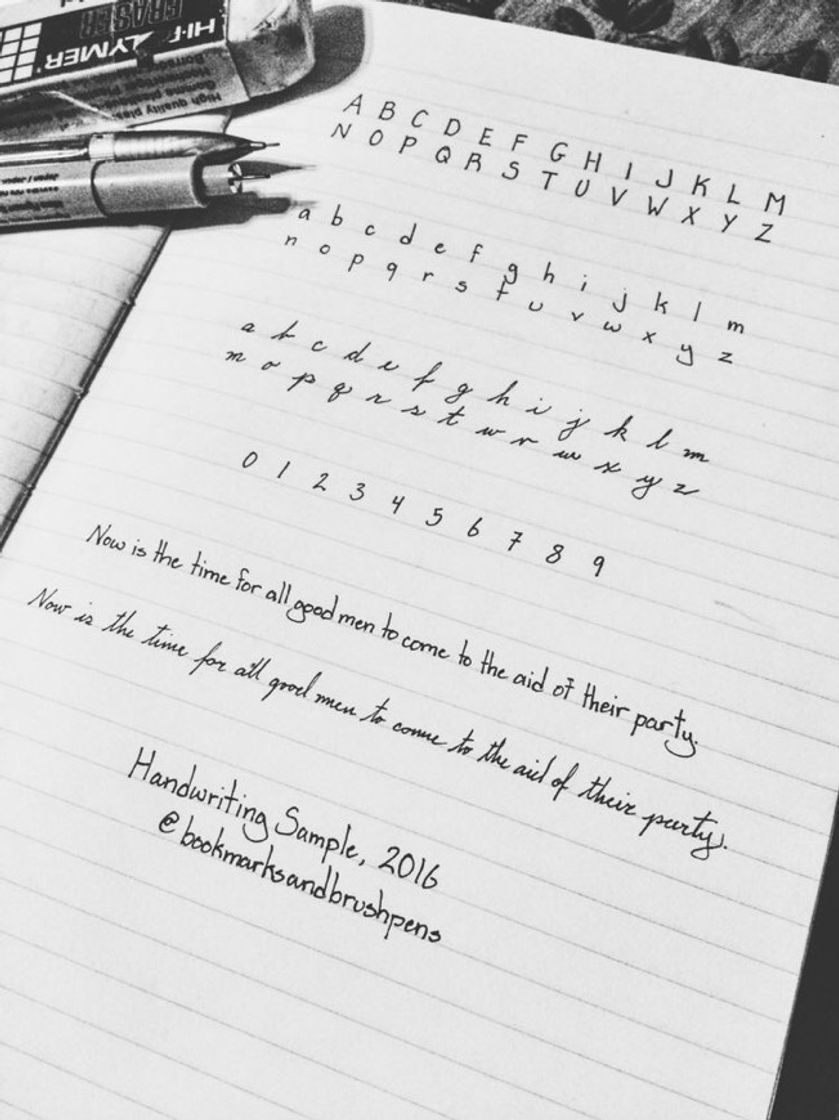 HI-POLYMER® ERASER
High quality plas
A B C D E F G H I J K L M
N O P Q R S T U V W X Y Z
a b c d e f g h i j k l m
n o p q r s t u v w x y z
a b c d e f g h i j k l m
n o p q r s t u v w x y z
0 1 2 3 4 5 6 7 8 9
Now is the time for all good men to come to the aid of their party.
Now is the time for all good men to come to the aid of their party.
Handwriting Sample, 2016
@bookmarksandbrushpens